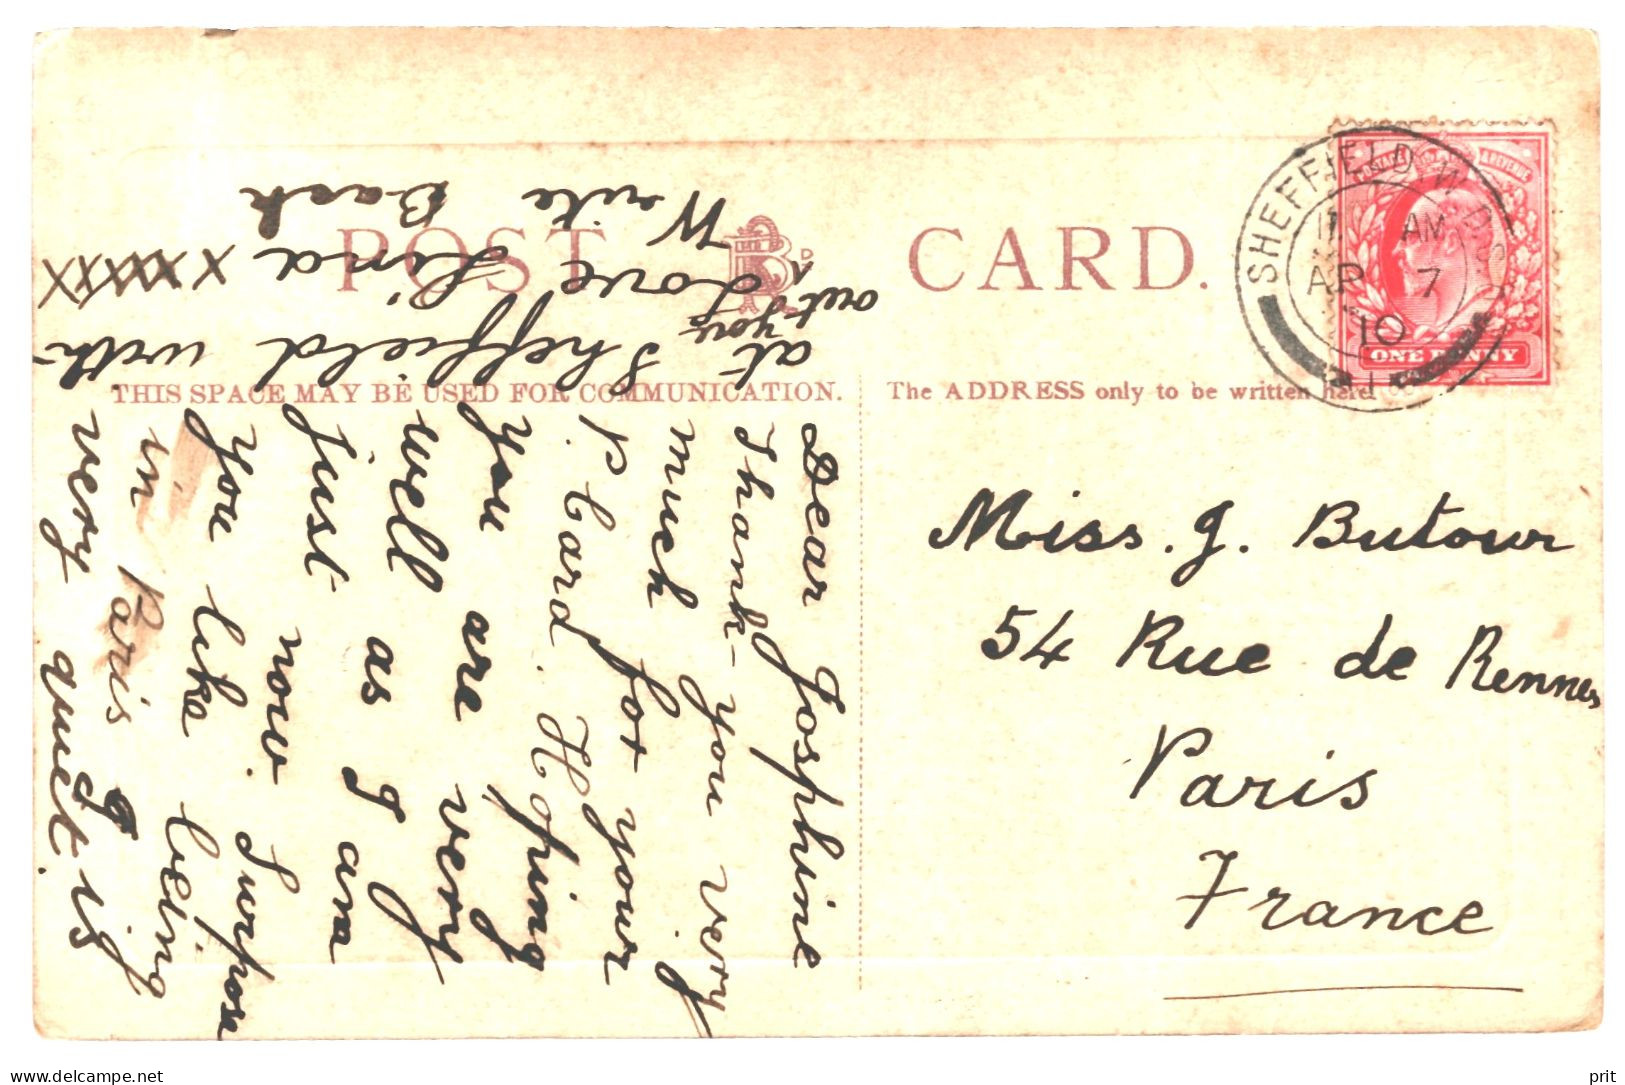 POST CARD.
THIS SPACE MAY BE USED FOR COMMUNICATION.
The ADDRESS only to be written here.
SHEFFIELD
AM
AP 7
10
1
POSTAGE & REVENUE
ONE PENNY
Miss. J. Butour
54 Rue de Rennes
Paris
France
Dear Josphine
Thank-you very
much for your
P. Card. Hoping
you are very
well as I am
just now. Surpose
you like being
in Paris
very quiet. is
at Sheffield with-
out you
Love Lina xxxxxx
Write Back
www.delcampe.net
prit